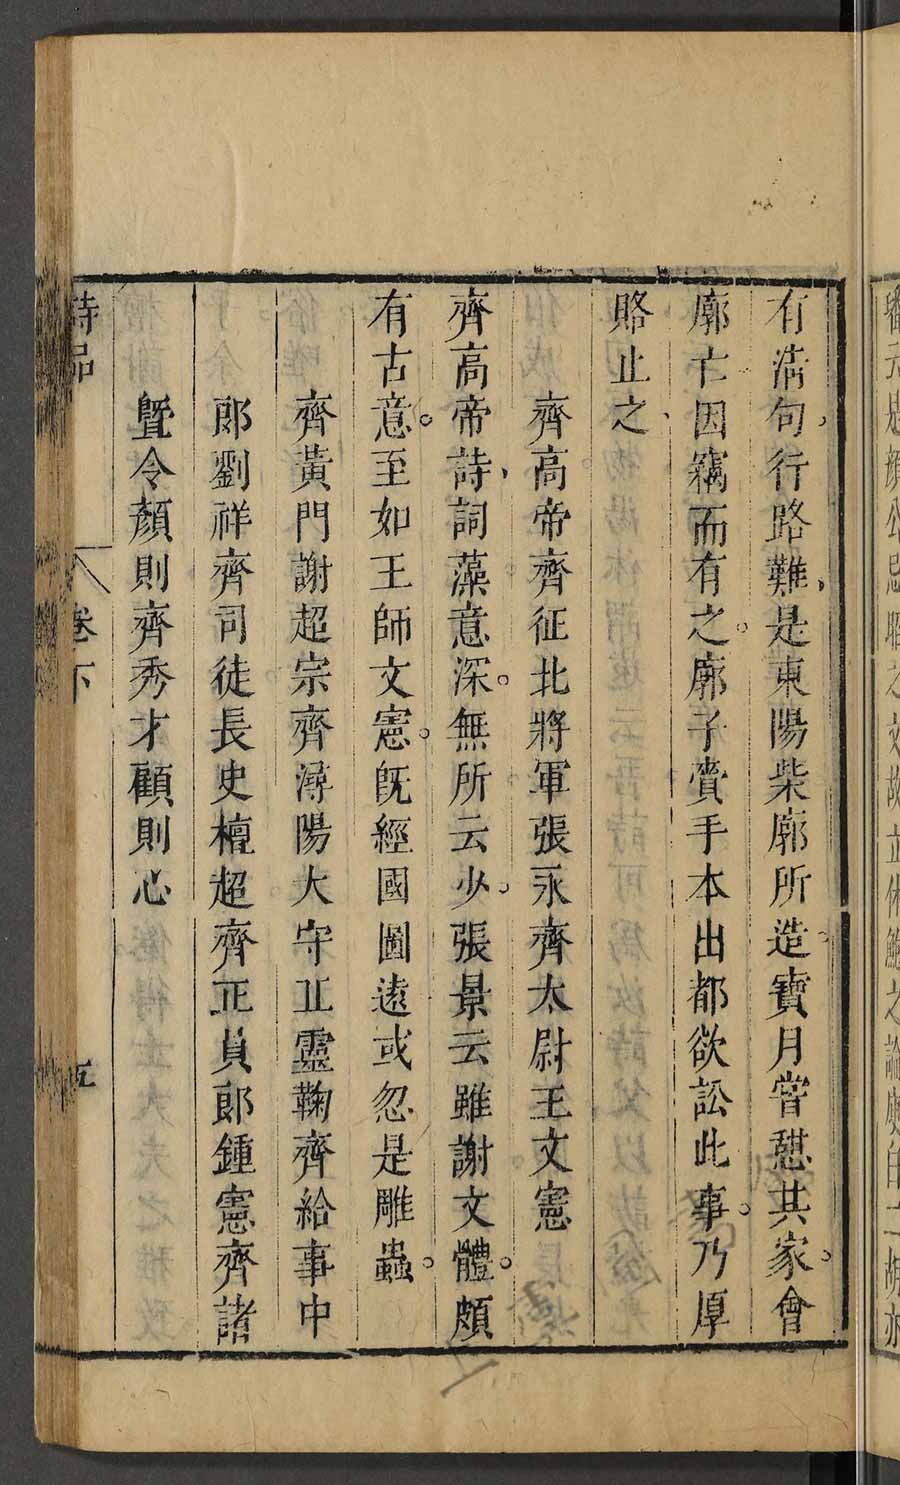 有清句行路難是東陽柴廓所造寶月嘗憇其家會
廓亡因竊而有之廓子賫手本出都欲訟此事乃厚
賂止之
齊高帝齊征北將軍張永齊太尉王文憲
齊高帝詩詞藻意深無所云少張景云雖謝文體頗
有古意至如王師文憲旣經國圖遠或忽是雕蟲
齊黃門謝超宗齊潯陽大守丘靈鞠齊給事中
郎劉祥齊司徒長史檀超齊正員郎鍾憲齊諸
曁令顏則齊秀才顧則心
詩品 卷下 五